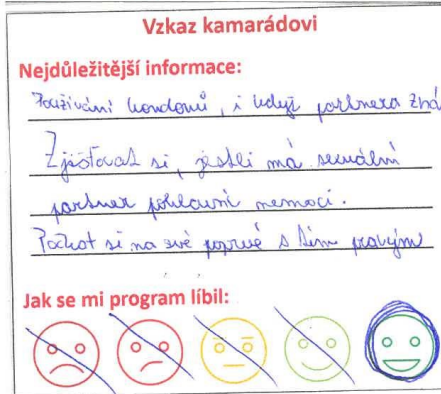 Vzkaz kamarádovi
Nejdůležitější informace:
Používání kondomů, i když partnera zná
Zjišťovat si, jestli má sexuální
partner pohlavní nemoci.
Počkat si na své poprvé s tím pravým
Jak se mi program líbil: